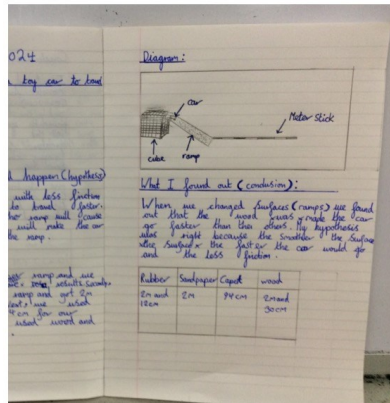 024
toy car to travel
happen (hypothesis)
with less friction
to travel faster.
ramp will cause
will make the car
the ramp.
ramp and we
results. Secondly,
ramp and got 2m
we used
4cm for our
used wood and
Diagram:
car
Meter Stick
cube
ramp
What I found out (conclusion):
When we changed surfaces (ramps) we found
out that the wood made the car
go faster than the others. My hypothesis
was right because the smoother the surface
the faster the car would go
and the less friction.
Rubber Sandpaper Capet wood
2m and 2m 94cm 2m and
12cm 30cm